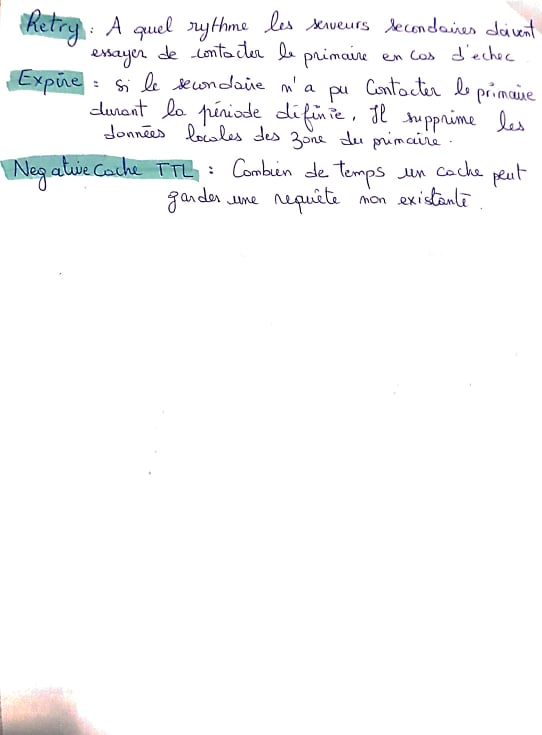 Retry : A quel rythme les serveurs secondaires doivent
essayer de contacter le primaire en cas d'echec
Expire : si le secondaire n'a pu Contacter le primaire
durant la période définie, Il supprime les
données locales des zone du primaire.
Negative Cache TTL : Combien de temps un cache peut
garder une requête non existante.